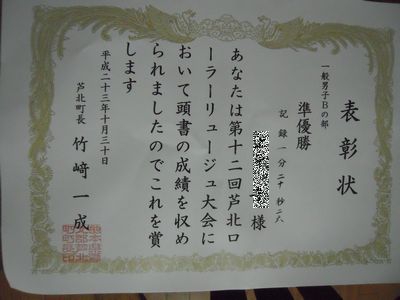 表彰状
一般男子Bの部
準優勝
記録 一分二十秒二八
様
あなたは第十二回芦北ロ
ーラーリュージュ大会に
おいて頭書の成績を収め
られましたのでこれを賞
します
平成二十三年十月三十日
芦北町長 竹﨑一成